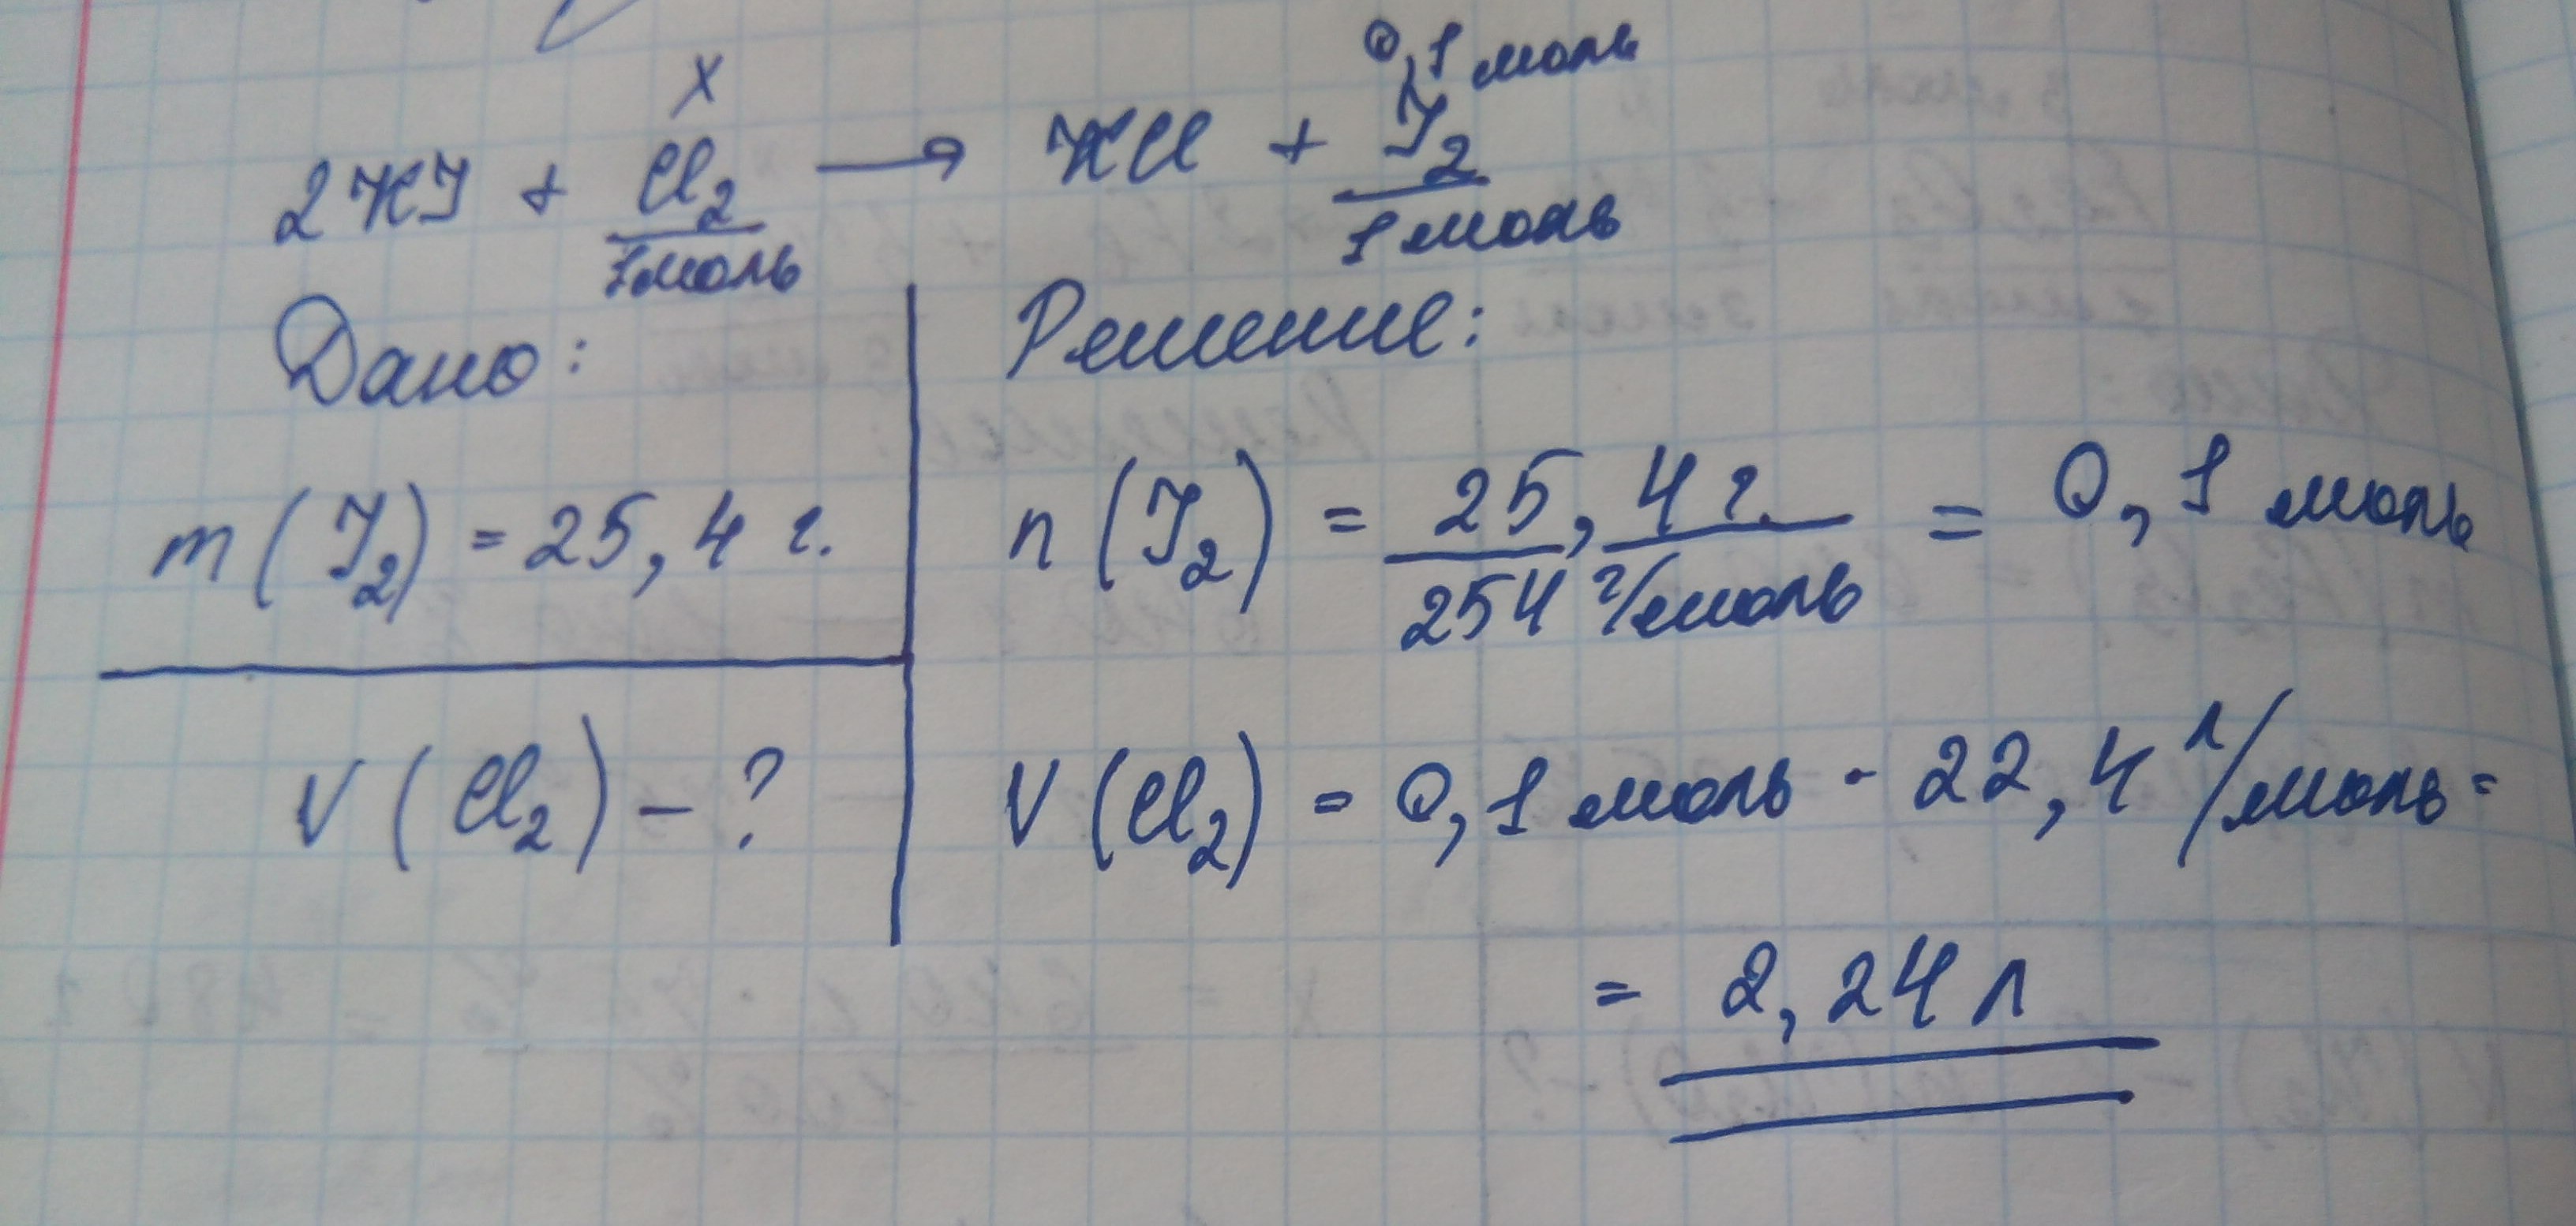 x 0,1 моль
2KJ + Cl₂ → KCl + J₂
1моль 1 моль
Дано:
m(J₂) = 25,4 г.
V(Cl₂) – ?
Решение:
n(J₂) = 25,4 г. / 254 г/моль = 0,1 моль
V(Cl₂) = 0,1 моль · 22,4 л/моль =
= 2,24 л